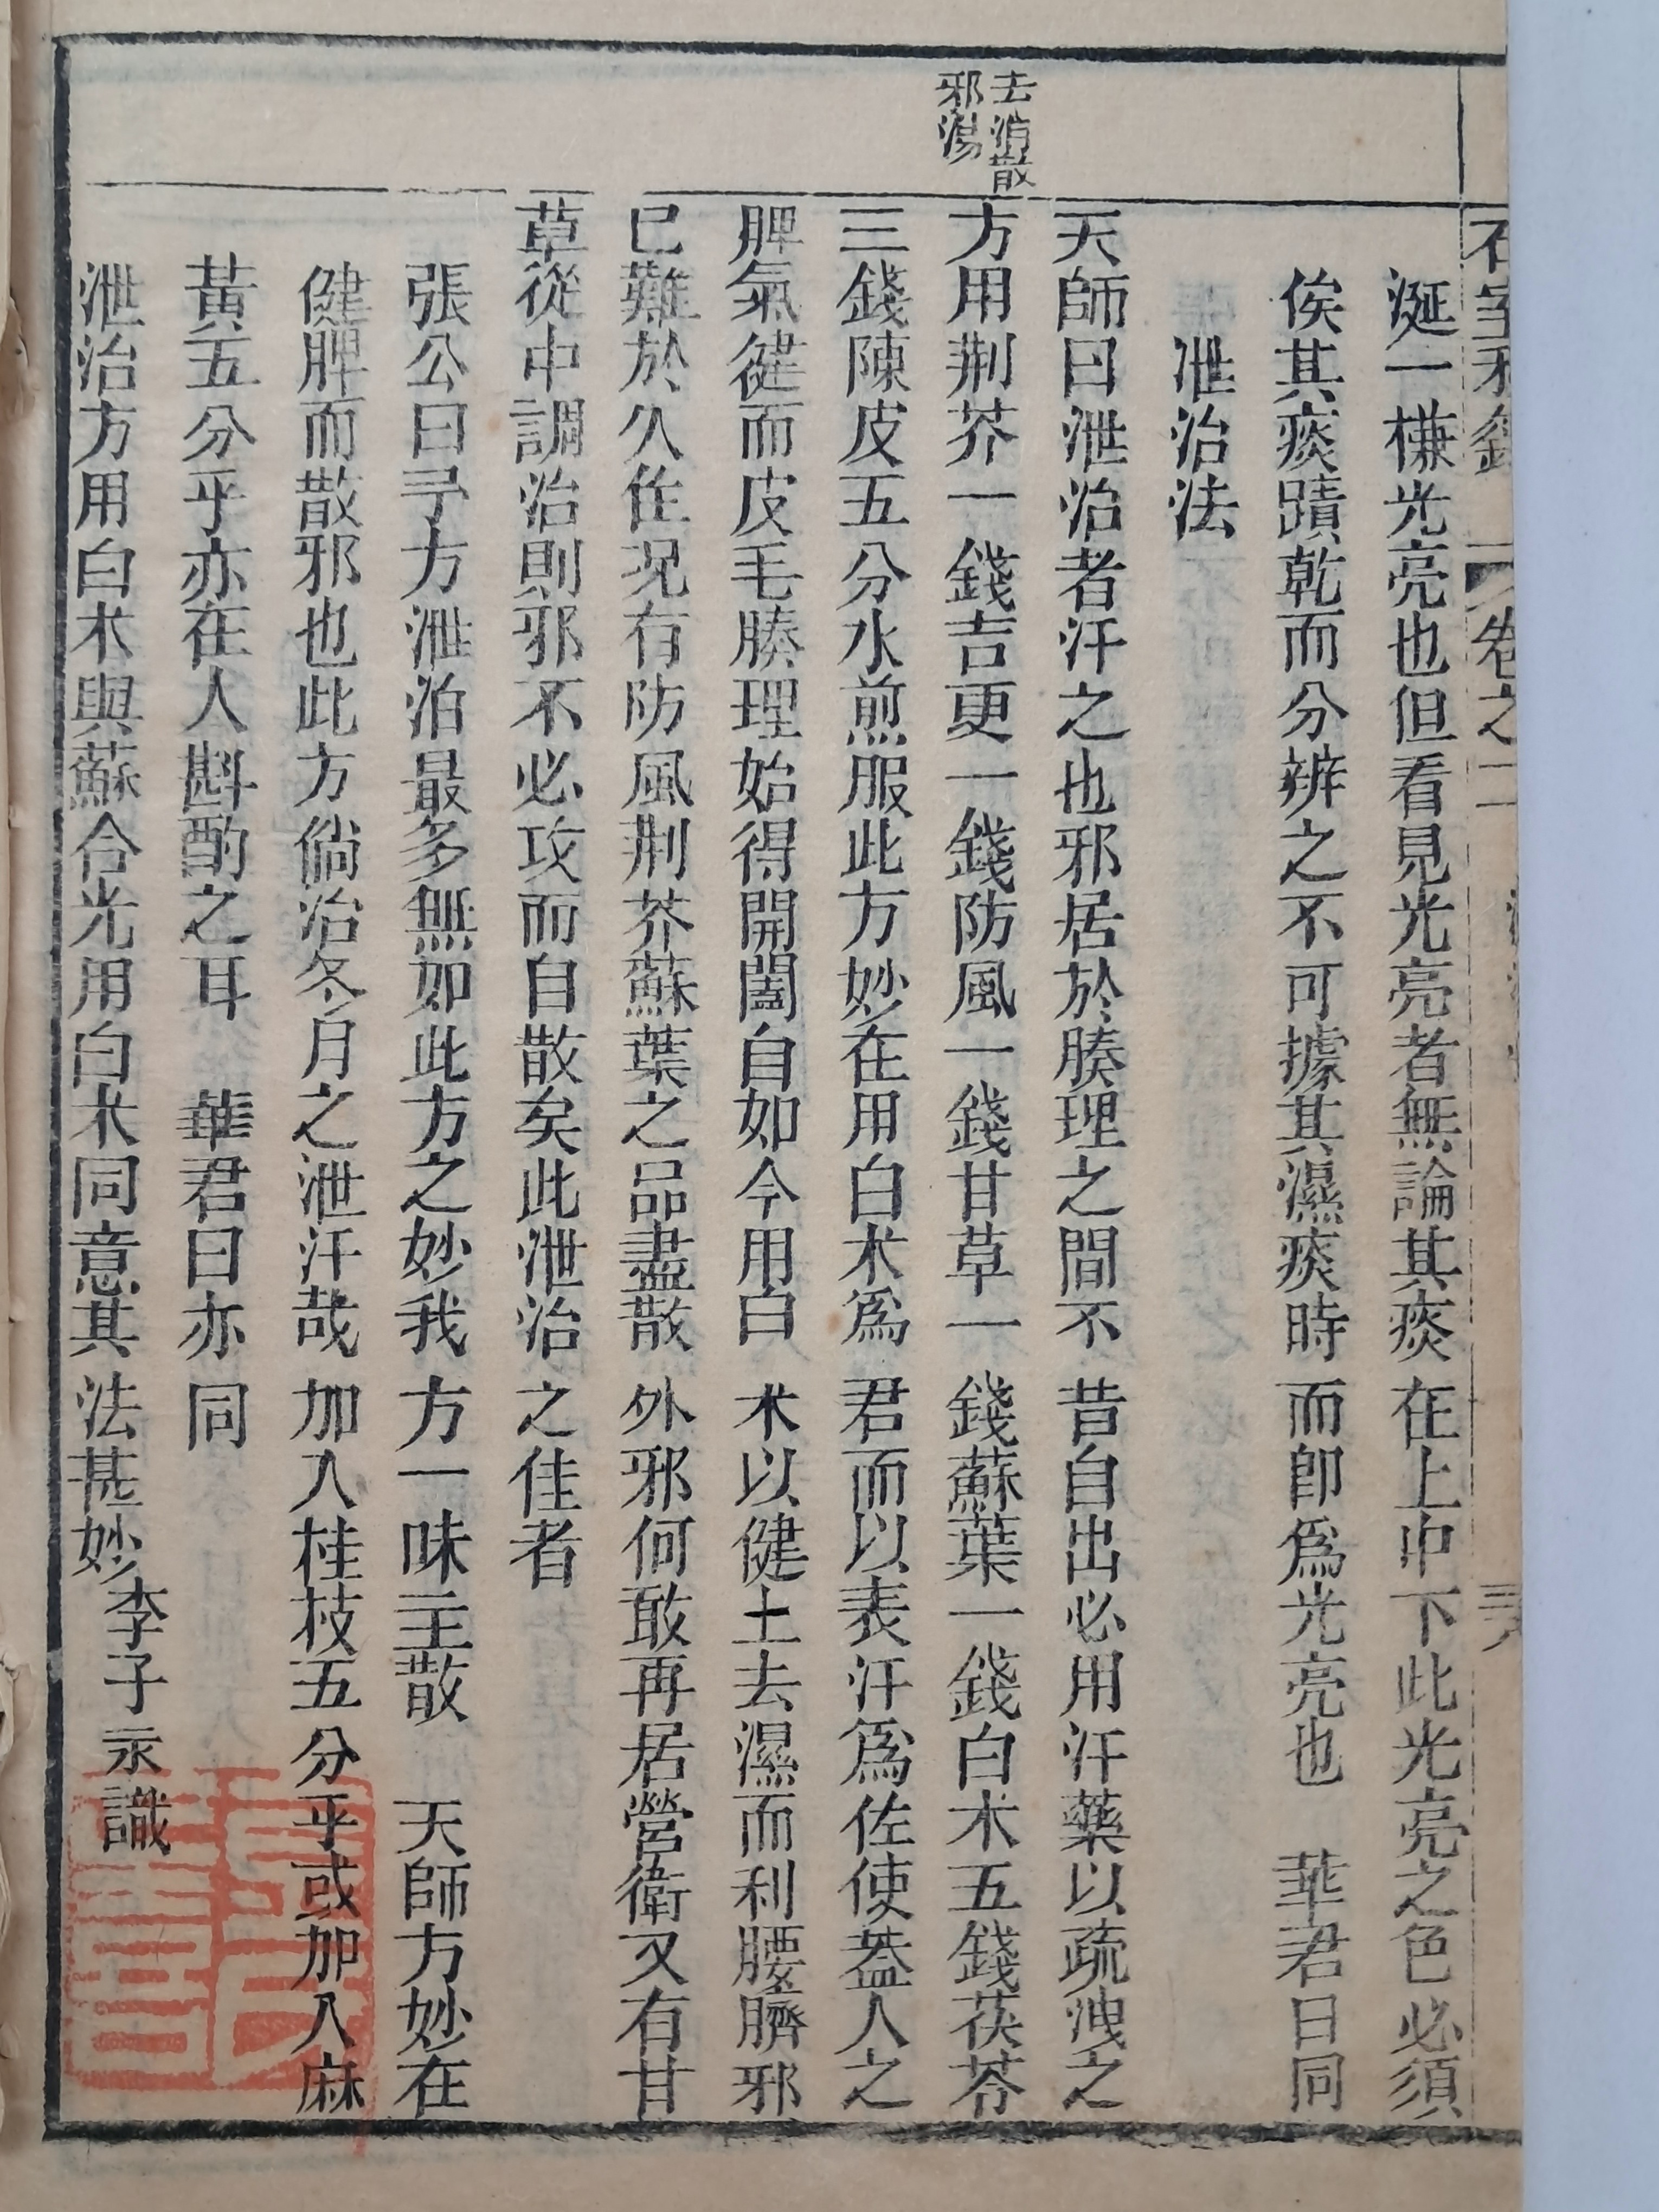 涎一㯠光亮也但看見光亮者無論其痰在上中下此光亮之色必須
俟其痰蹟乾而分辨之不可據其濕痰時而卽爲光亮也　華君曰同
泄治法
天師曰泄治者汗之也邪居於腠理之間不昔自出必用汗藥以疏洩之
去消散
邪湯
方用荆芥一錢吉更一錢防風一錢甘草一錢蘇葉一錢白术五錢茯苓
三錢陳皮五分水煎服此方妙在用白术爲君而以表汗爲佐使葢人之
脾氣健而皮毛腠理始得開闔自如今用白术以健土去濕而利腰臍邪
已難於久住况有防風荆芥蘇葉之品盡散外邪何敢再居營衛又有甘
草從中調治則邪不必攻而自散矣此泄治之佳者
張公曰予方泄治最多無如此方之妙我方一味主散　天師方妙在
健脾而散邪也此方倘治冬月之泄汗哉加入桂枝五分乎或加入麻
黃五分乎亦在人斟酌之耳　華君曰亦同
泄治方用白术與蘇合光用白术同意其法甚妙李子永識